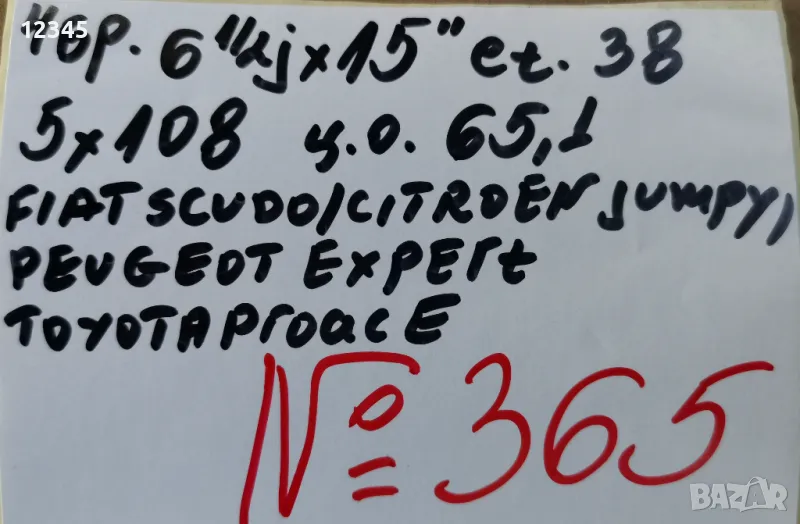 12345
Нор. 6 1/2j x 15" et. 38
5x108 ц.о. 65,1
FIAT SCUDO/CITROEN jumpy,
PEUGEOT EXPERt
TOYOTA ProacE
№ 365
BAZAR